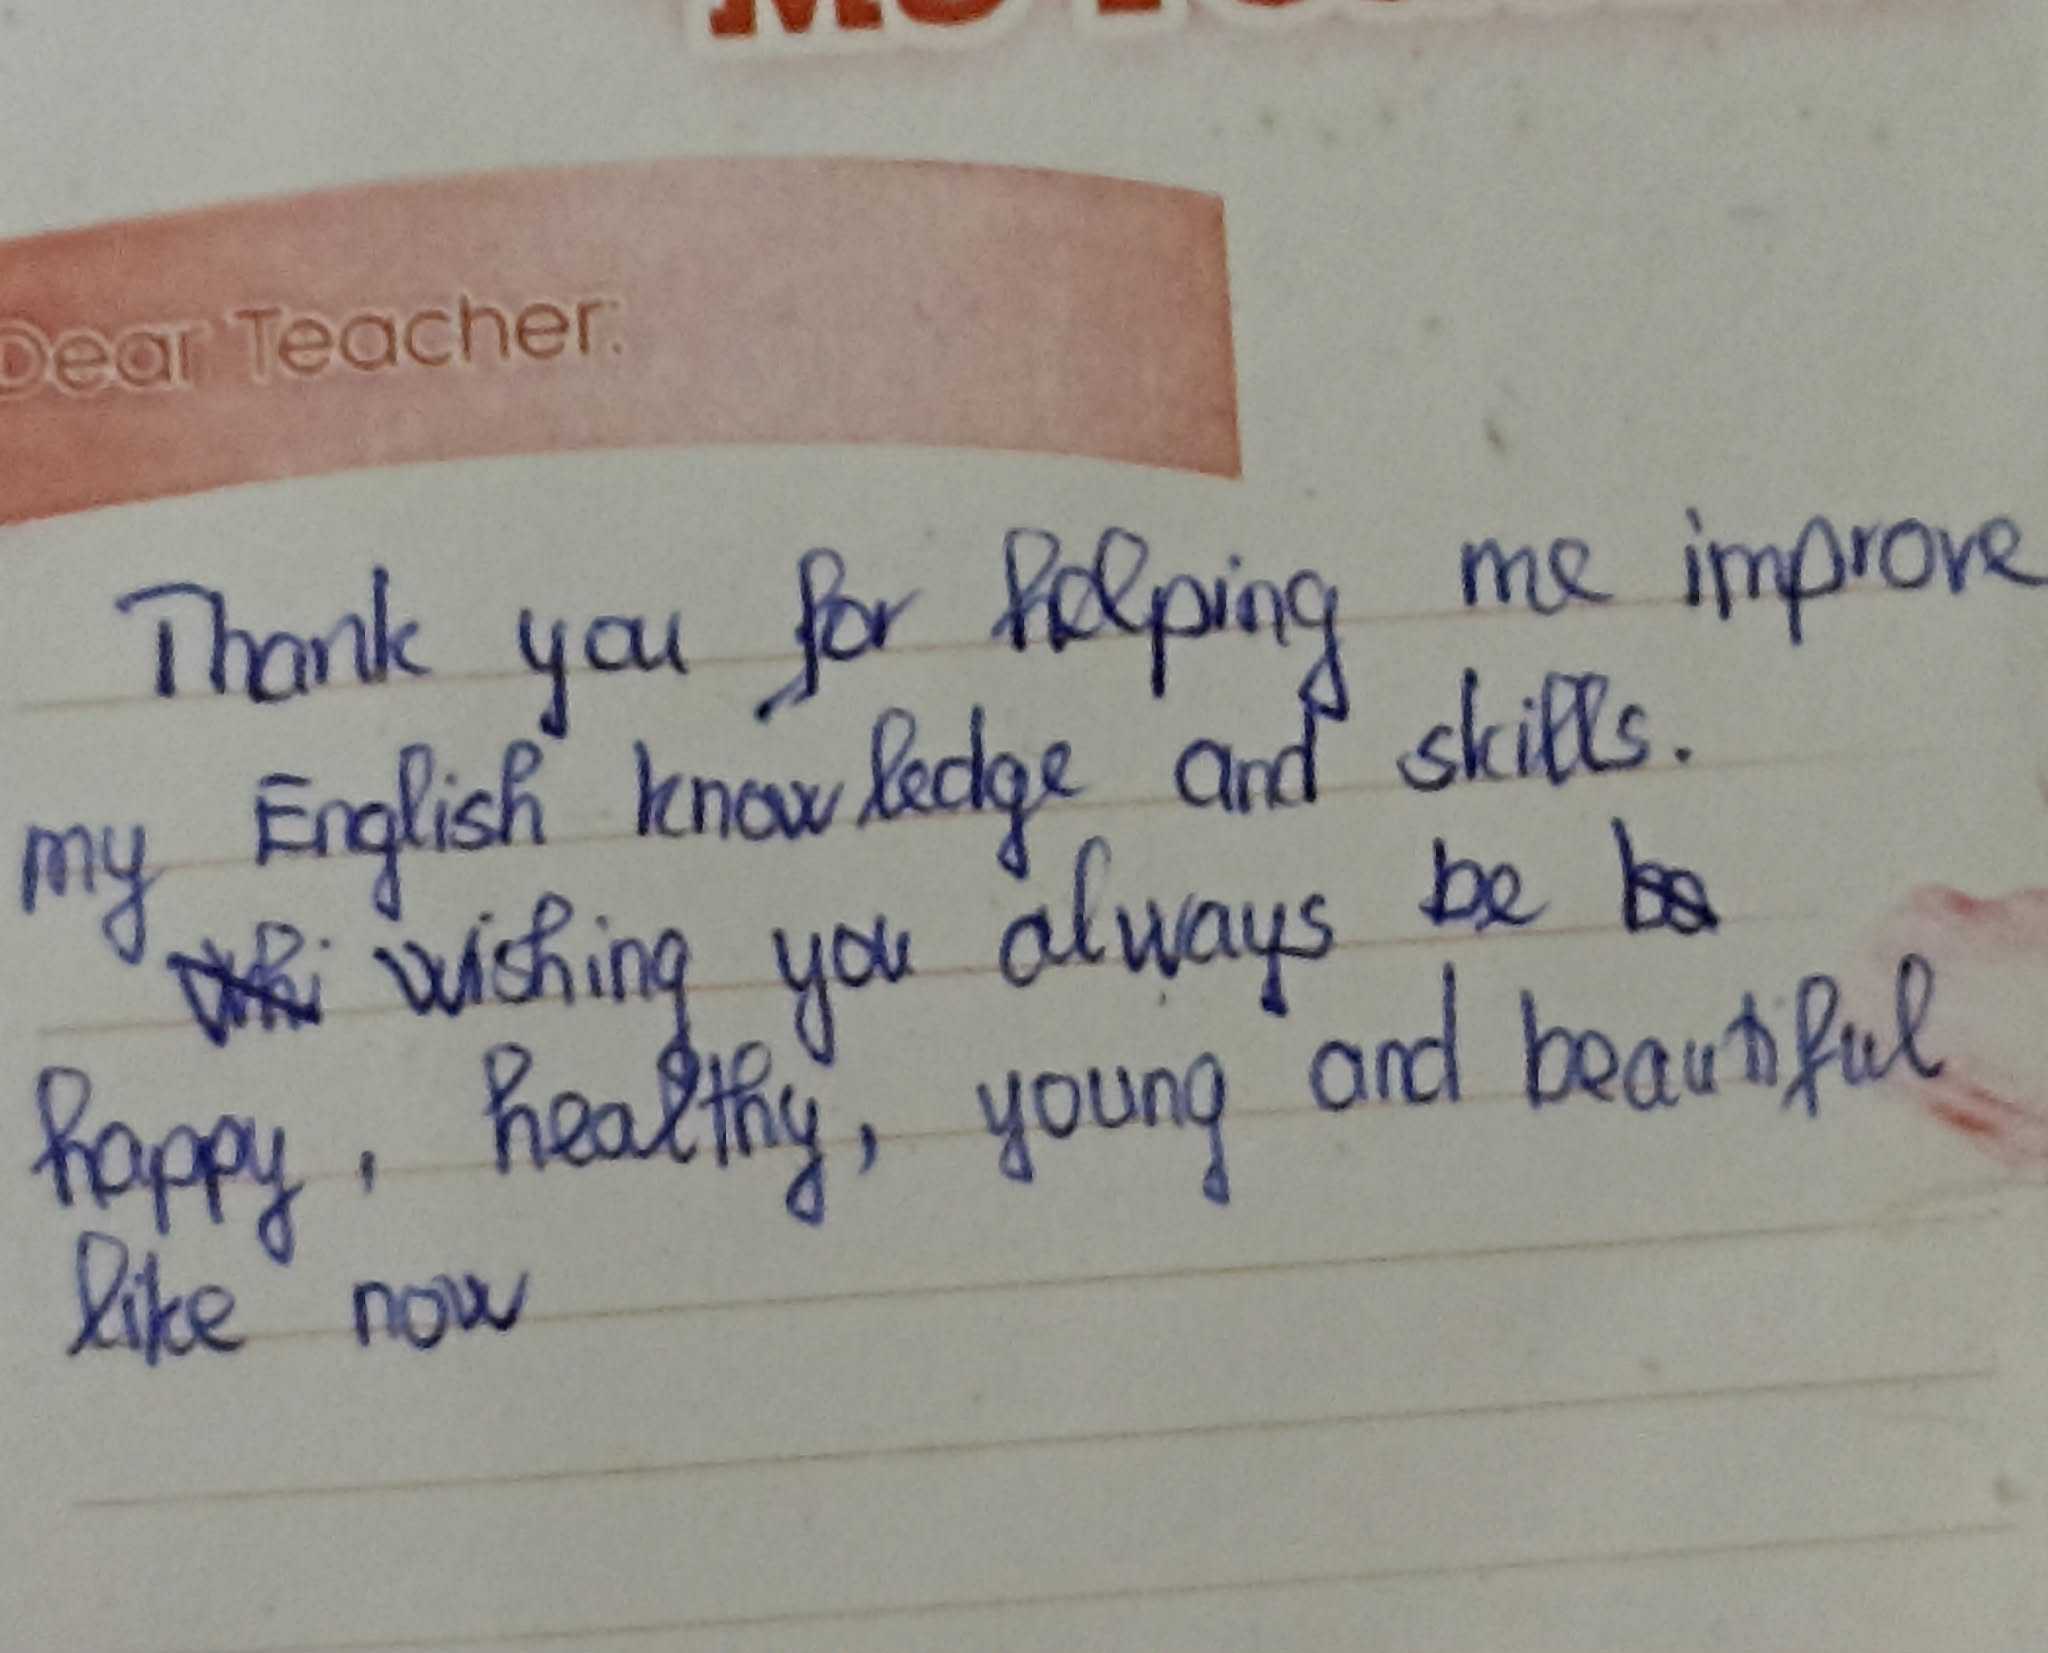 Dear Teacher:
Thank you for helping me improve
my English knowledge and skills.
wishing you always be
happy, healthy, young and beautiful
like now